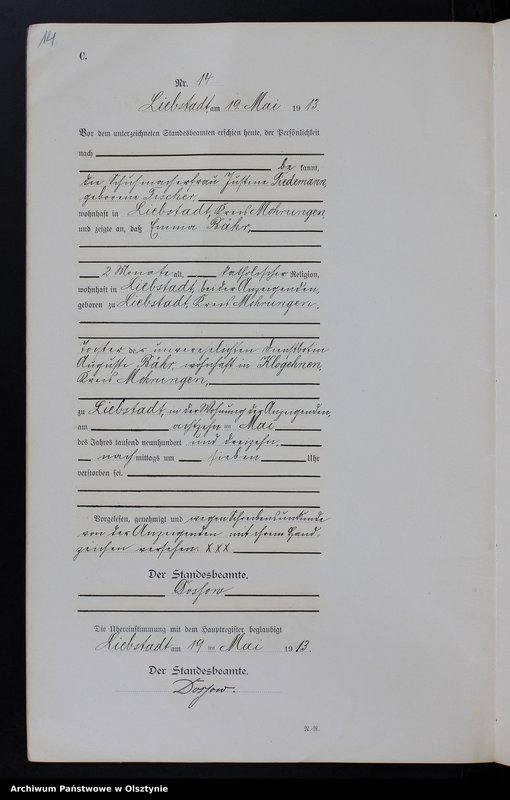 14.
C.
Nr. 14
Liebstadt, am 19. Mai 1913.
Vor dem unterzeichneten Standesbeamten erschien heute, der Persönlichkeit
nach
be kannt,
die Schuhmacherfrau Justine Tiedemann,
geborene Fischer,
wohnhaft in Liebstadt, Kreis Mohrungen,
und zeigte an, daß Emma Bähr,
2 Monate alt, katholischer Religion,
wohnhaft in Liebstadt, bei der Anzeigenden,
geboren zu Liebstadt, Kreis Mohrungen,
Tochter der unverehelichten Dienstbotin
Auguste Bähr, wohnhaft in Klogehnen,
Kreis Mohrungen,
zu Liebstadt, in der Wohnung der Anzeigenden,
am achtzehn ten Mai
des Jahres tausend neunhundert und dreizehn,
nach mittags um sieben Uhr
verstorben sei.
Vorgelesen, genehmigt und wegen Schreibensunkunde
von der Anzeigenden mit ihrem Hand-
zeichen versehen. XXX
Der Standesbeamte.
Dossow
Die Übereinstimmung mit dem Hauptregister beglaubigt
Liebstadt am 19 ten Mai 1913.
Der Standesbeamte.
Dossow.
N.-R.
Archiwum Państwowe w Olsztynie